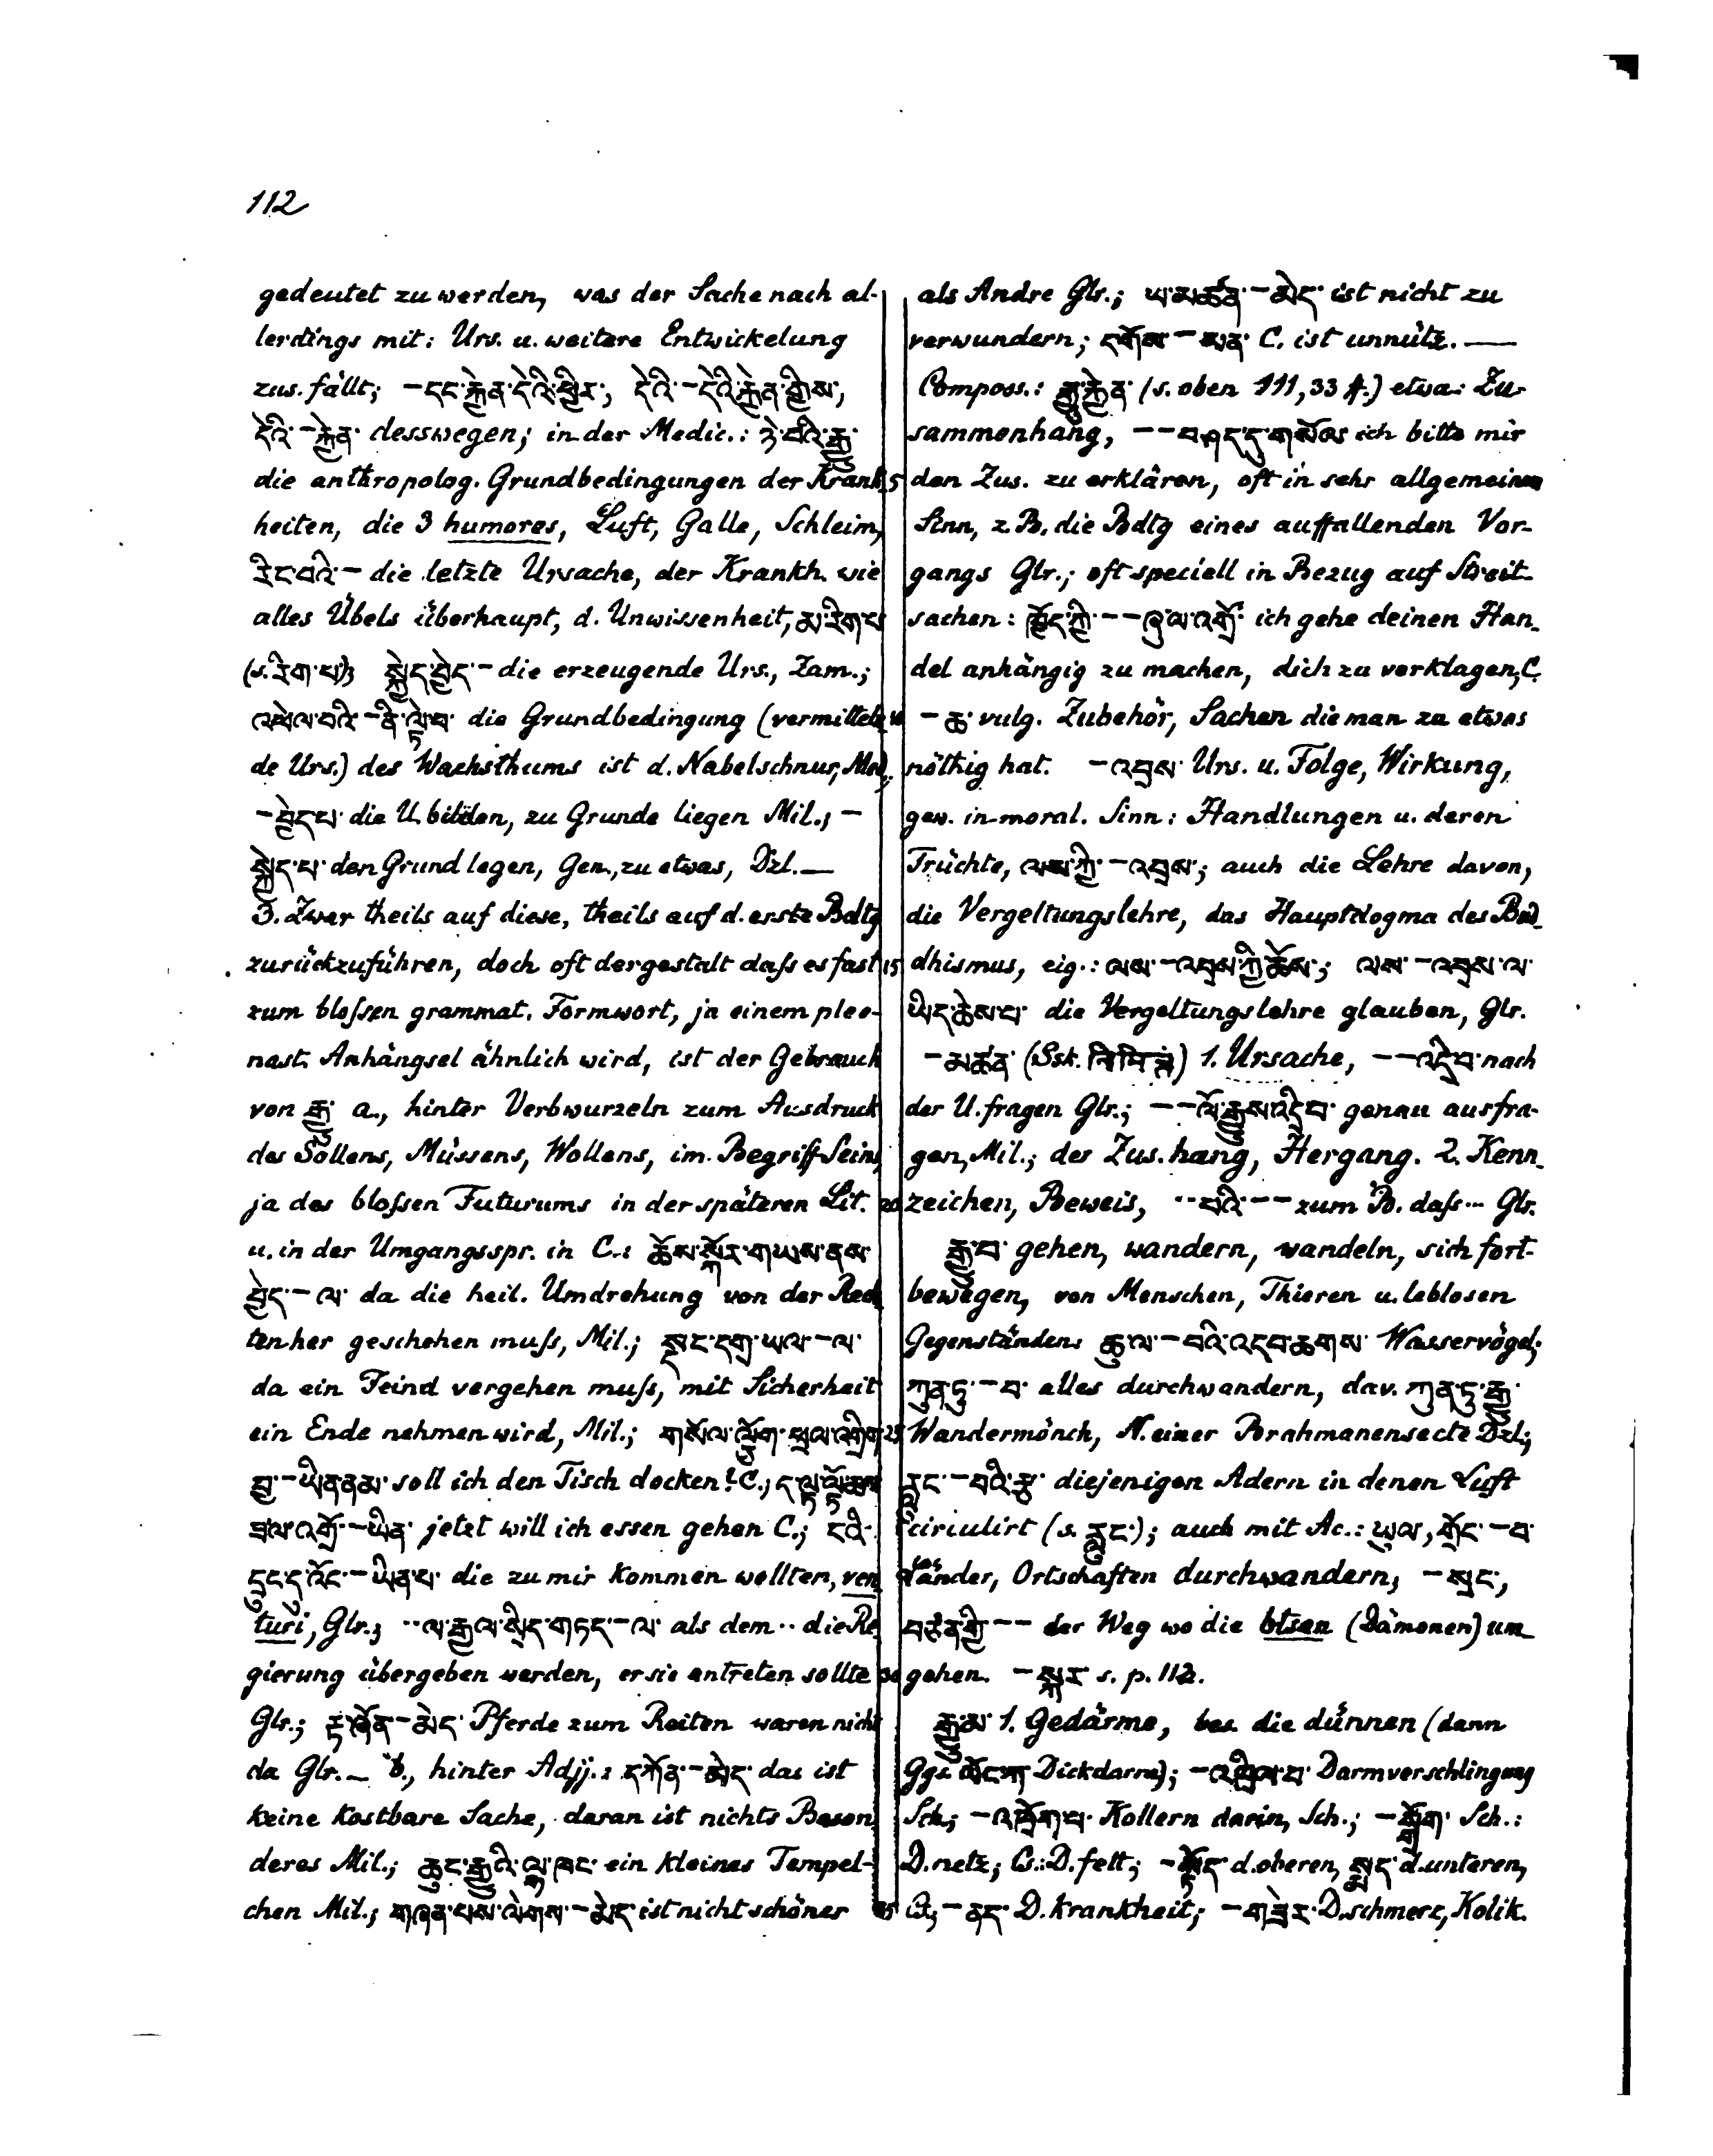 112
gedeutet zu werden, was der Sache nach al-
lerdings mit: Urs. u. weitere Entwickelung
zus. fällt; –དང་རྐྱེན་དེའི་ཕྱིར་, དེའི་–དེའི་རྐྱེན་གྱིས་,
དེའི་–རྐྱེན་ desswegen; in der Medic.: ཉེ་བའི་རྒྱུ་
die anthropolog. Grundbedingungen der Krank- 5
heiten, die 3 humores, Luft, Galle, Schleim,
རིང་བའི་– die letzte Ursache, der Krankh. wie
alles Übels überhaupt, d. Unwissenheit, མ་རིག་པ་
(s. རིག་པ་); སྐྱེད་བྱེད་– die erzeugende Urs., Zam.;
འཕེལ་བའི་–ནི་ལྟེ་བ་ die Grundbedingung (vermitteln- 10
de Urs.) des Wachsthums ist d. Nabelschnur, Med.;
–བྱེད་པ་ die U. bilden, zu Grunde liegen Mil.; –
སྐྱེད་པ་ den Grund legen, Gen., zu etwas, Dzl. —
3. Zwar theils auf diese, theils auf d. erste Bdtg
zurückzuführen, doch oft dergestalt daſs es fast 15
zum bloſsen grammat. Formwort, ja einem pleo-
nast. Anhängsel ähnlich wird, ist der Gebrauch
von རྒྱུ་ a., hinter Verbwurzeln zum Ausdruck
des Sollens, Müssens, Wollens, im Begriff Seins,
ja des bloſsen Futurums in der späteren Lit. 20
u. in der Umgangsspr. in C.: ཆོས་སྐོར་གཡས་ནས་
བྱེད་–ལ་ da die heil. Umdrehung von der Rech
ten her geschehen muſs, Mil.; སྡང་དགྲ་ཡལ་–ལ་
da ein Feind vergehen muſs, mit Sicherheit
ein Ende nehmen wird, Mil.; གསོལ་ལྕོག་ 25
–ཡིན་ནམ་ soll ich den Tisch decken? C.; ད་ལྟ་ལྟོ་
འགྲོ་–ཡིན་ jetzt will ich essen gehen C.; ངའི་
དྲུང་དུ་འོང་–ཡིན་པ་ die zu mir kommen wollten, ven
turi, Glr.; ··ལ་རྒྱལ་སྲིད་གཏད་–ལ་ als dem ·· die Re
gierung übergeben werden, er sie antreten sollte 30
Glr.; རྟ་ཞོན་–མེད་ Pferde zum Reiten waren nicht
da Glr. — b., hinter Adjj.: དཀོན་–མེད་ das ist
keine kostbare Sache, daran ist nichts Beson
deres Mil.; ཆུང་རྒྱུའི་ལྷ་ཁང་ ein kleines Tempel-
chen Mil.; གཞན་པས་ལེགས་–མེད་ ist nicht schöner 35
als Andre Glr.; ཡ་མཚན་–མེད་ ist nicht zu
verwundern; དགོས་–མན་ C. ist unnütz. —
Composs.: རྒྱུ་རྐྱེན་ (s. oben 111, 33 ff.) etwa: Zu-
sammenhang, ––བཤད་དུ་གསོལ་ ich bitte mir
den Zus. zu erklären, oft in sehr allgemeinem
Sinn, z. B. die Bdtg eines auffallenden Vor-
gangs Glr.; oft speciell in Bezug auf Streit-
sachen: ཁྱོད་ཀྱི་––ཞུ་ལ་འགྲོ་ ich gehe deinen Han-
del anhängig zu machen, dich zu verklagen, C.
–ཆ་ vulg. Zubehör, Sachen die man zu etwas
nöthig hat. –འབྲས་ Urs. u. Folge, Wirkung,
gew. in moral. Sinn: Handlungen u. deren
Früchte, ལས་ཀྱི་–འབྲས་; auch die Lehre davon,
die Vergeltungslehre, das Hauptdogma des Bud-
dhismus, eig.: ལས་–འབྲས་ཀྱི་ཆོས་; ལས་–འབྲས་ལ་
ཡིད་ཆེས་པ་ die Vergeltungslehre glauben, Glr.
–མཚན་ (Ssk. निमित्तं) 1. Ursache, ––འདྲི་བ་ nach
der U. fragen Glr.; ––ལོ་རྒྱུས་འདྲི་བ་ genau ausfra-
gen, Mil.; der Zus. hang, Hergang. 2. Kenn-
zeichen, Beweis, ··བའི་–– zum B. daſs ··· Glr.
རྒྱུ་བ་ gehen, wandern, wandeln, sich fort-
bewegen, von Menschen, Thieren u. leblosen
Gegenständen: ཆུ་ལ་–བའི་འདབ་ཆགས་ Wasservögel;
ཀུན་ཏུ་–བ་ alles durchwandern, dav. ཀུན་ཏུ་རྒྱུ་
Wandermönch, N. einer Brahmanensecte Dzl.;
རླུང་–བའི་རྩ་ diejenigen Adern in denen Luft
circulirt (s. རླུང་); auch mit Ac.: ཡུལ་, གྲོང་–བ་
Länder, Ortschaften durchwandern, –སྲང་,
བཙན་གྱི་–– der Weg wo die btsan (Dämonen) um
gehen. –སྐར་ s. p. 112.
རྒྱུ་མ་ 1. Gedärme, bes. die dünnen (denn
Ggs. ལོང་ཀ་ Dickdarm); –འཁྲིལ་བ་ Darmverschlingung
Sch.; –འཁྲོག་པ་ Kollern darin, Sch.; –སྒྲོག་ Sch.:
D. netz; Cs.: D. fett; –སྟོད་ d. oberen, སྨད་ d. unteren,
Cs., –ནད་ D. krankheit; –གཟེར་ D. schmerz, Kolik.